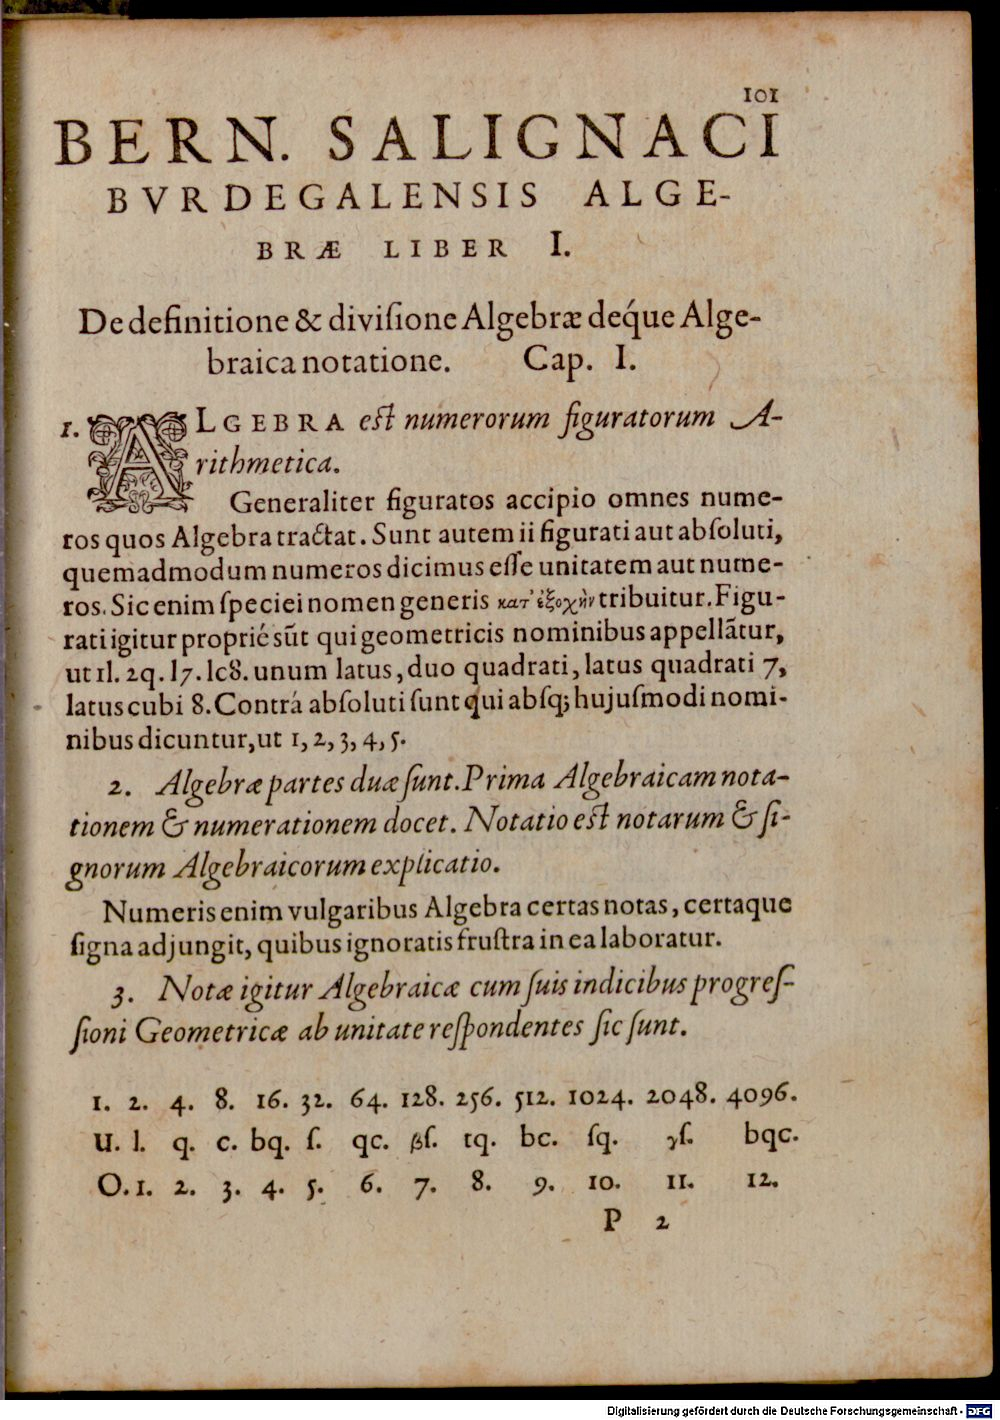 101
BERN. SALIGNACI
BVRDEGALENSIS ALGE-
BRÆ LIBER I.
De definitione & diviſione Algebræ deq́ue Alge-
braica notatione. Cap. I.
1. ALGEBRA eſt numerorum figuratorum A-
rithmetica.
Generaliter figuratos accipio omnes nume-
ros quos Algebra tractat. Sunt autem ii figurati aut abſoluti,
quemadmodum numeros dicimus eſſe unitatem aut nume-
ros. Sic enim ſpeciei nomen generis κατ' ἐξοχὴν tribuitur. Figu-
rati igitur proprié sũt qui geometricis nominibus appellãtur,
ut 1l. 2q. l7. lc8. unum latus, duo quadrati, latus quadrati 7,
latus cubi 8. Contrá abſoluti ſunt qui abſq; hujuſmodi nomi-
nibus dicuntur, ut 1, 2, 3, 4, 5.
2. Algebræ partes duæ ſunt. Prima Algebraicam nota-
tionem & numerationem docet. Notatio eſt notarum & ſi-
gnorum Algebraicorum explicatio.
Numeris enim vulgaribus Algebra certas notas, certaque
ſigna adjungit, quibus ignoratis fruſtra in ea laboratur.
3. Notæ igitur Algebraicæ cum ſuis indicibus progreſ-
ſioni Geometricæ ab unitate reſpondentes ſic ſunt.
1. 2. 4. 8. 16. 32. 64. 128. 256. 512. 1024. 2048. 4096.
U. l. q. c. bq. ſ. qc. βſ. tq. bc. ſq. γſ. bqc.
O. 1. 2. 3. 4. 5. 6. 7. 8. 9. 10. 11. 12.
P 2
Digitalisierung gefördert durch die Deutsche Forschungsgemeinschaft - DFG